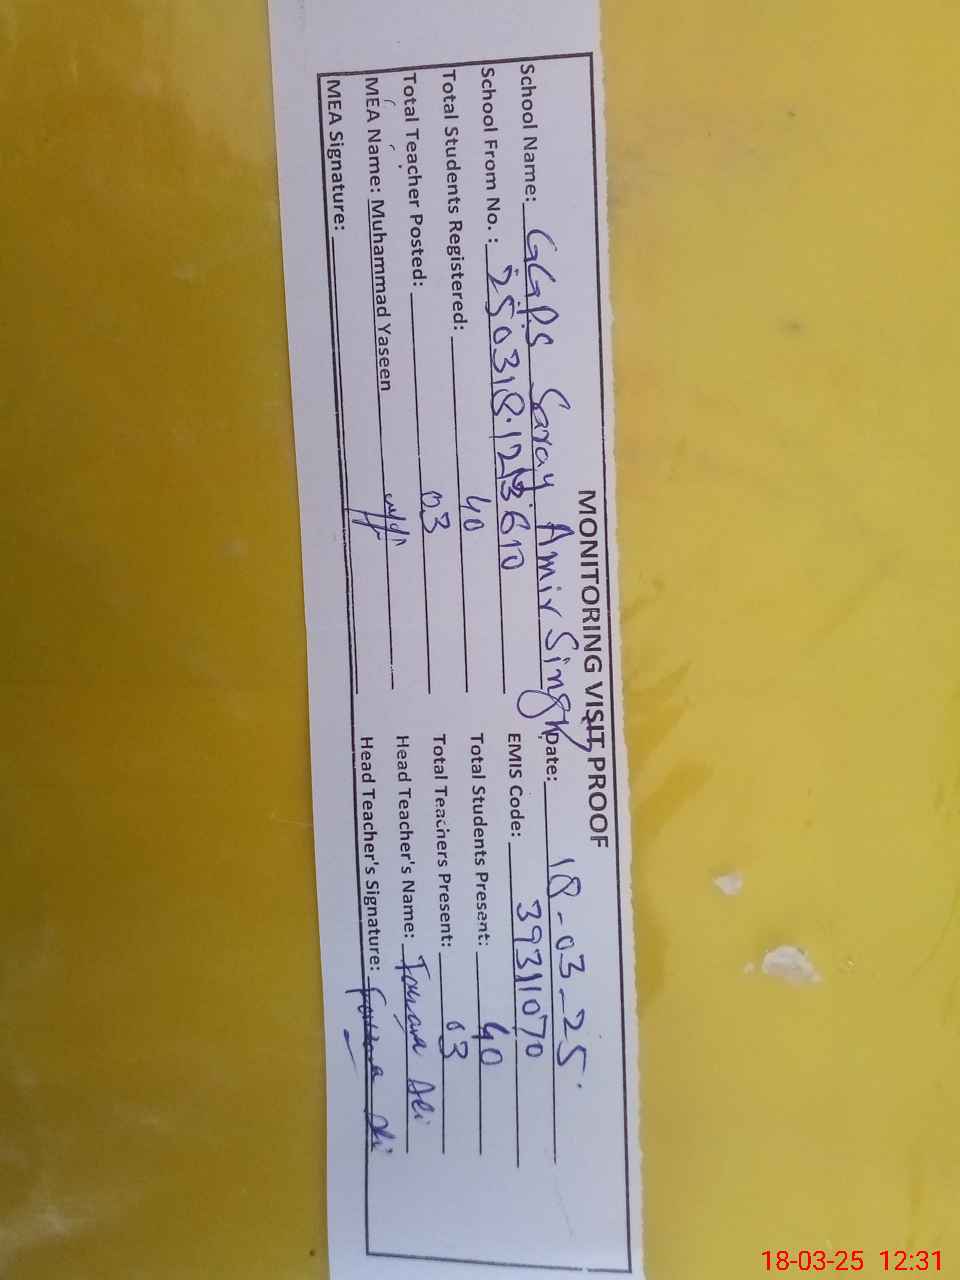 MONITORING VISIT PROOF
School Name: GGPS Saray Amir Singh Date: 18-03-25.
School From No.: 250318.1213610 EMIS Code: 39311070
Total Students Registered: 40 Total Students Present: 40
Total Teacher Posted: 03 Total Teachers Present: 03
MEA Name: Muhammad Yaseen Head Teacher's Name: Ali
MEA Signature: Head Teacher's Signature: Ali
18-03-25 12:31